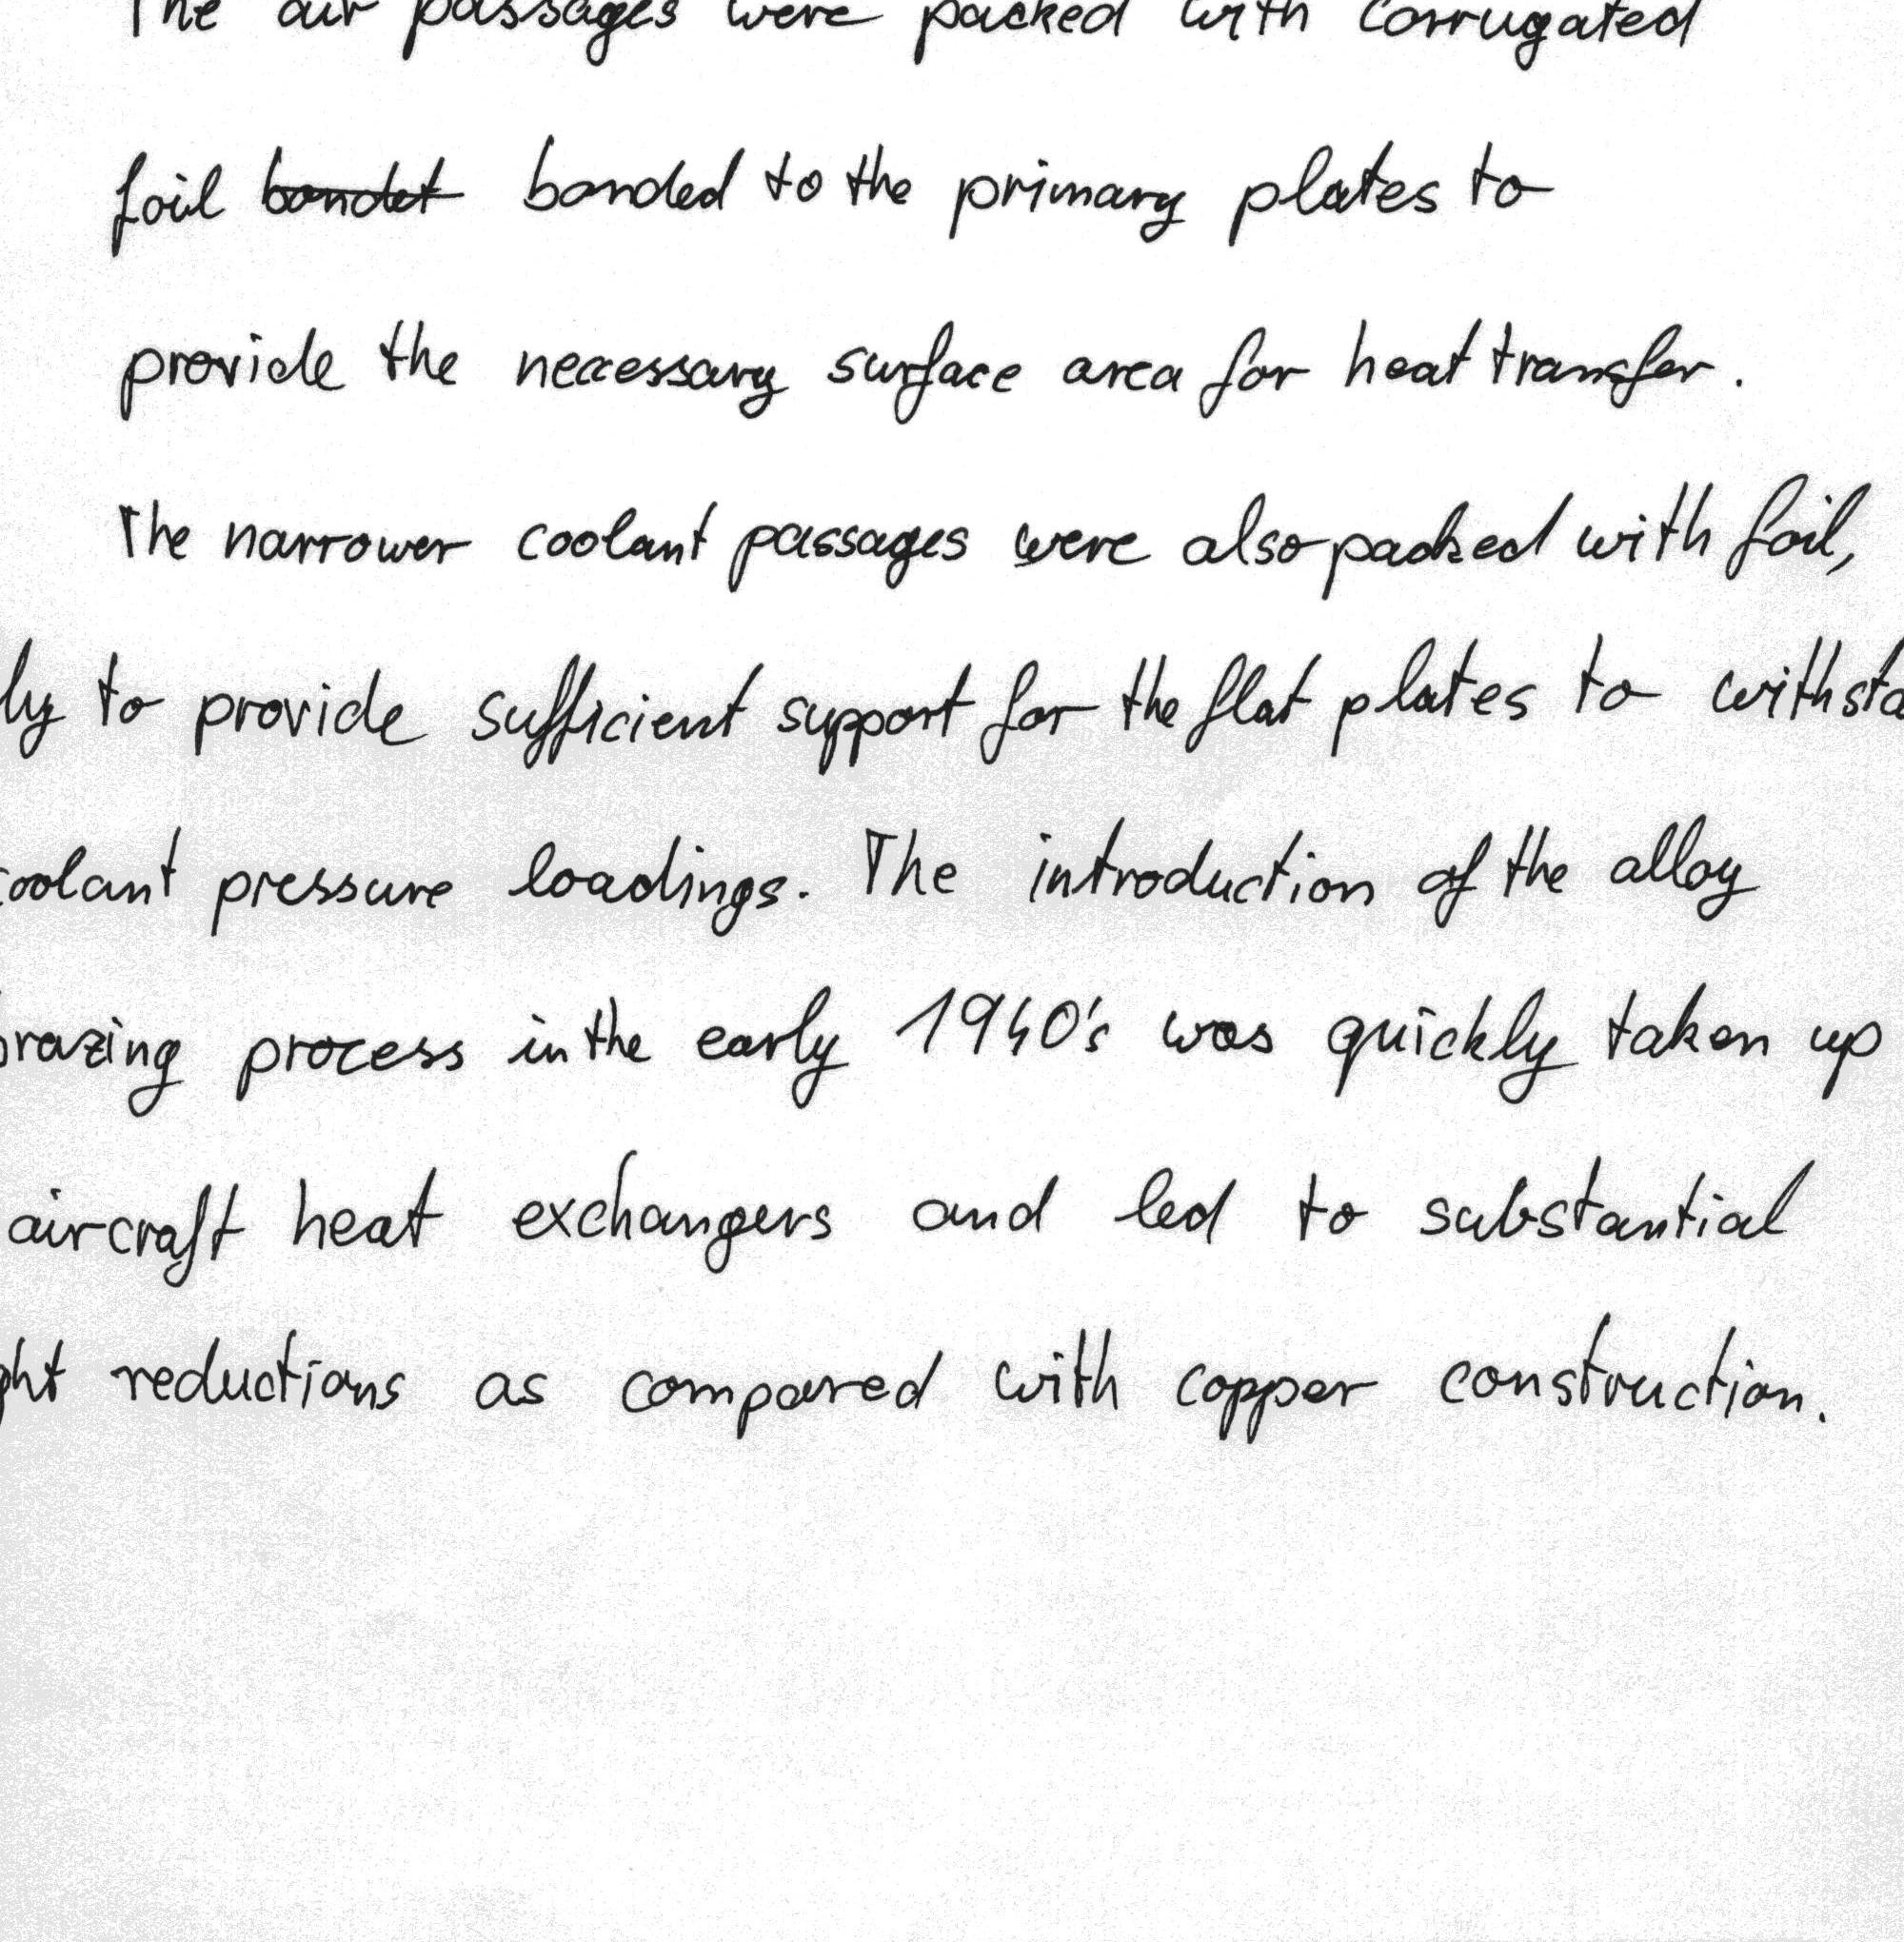 The air passages were packed with corrugated
foil bondet bonded to the primary plates to
provide the necessary surface area for heat transfer.
The narrower coolant passages were also packed with foil,
ly to provide sufficient support for the flat plates to withsta
coolant pressure loadings. The introduction of the alloy
brazing process in the early 1940's was quickly taken up
aircraft heat exchangers and led to substantial
ght reductions as compared with copper construction.